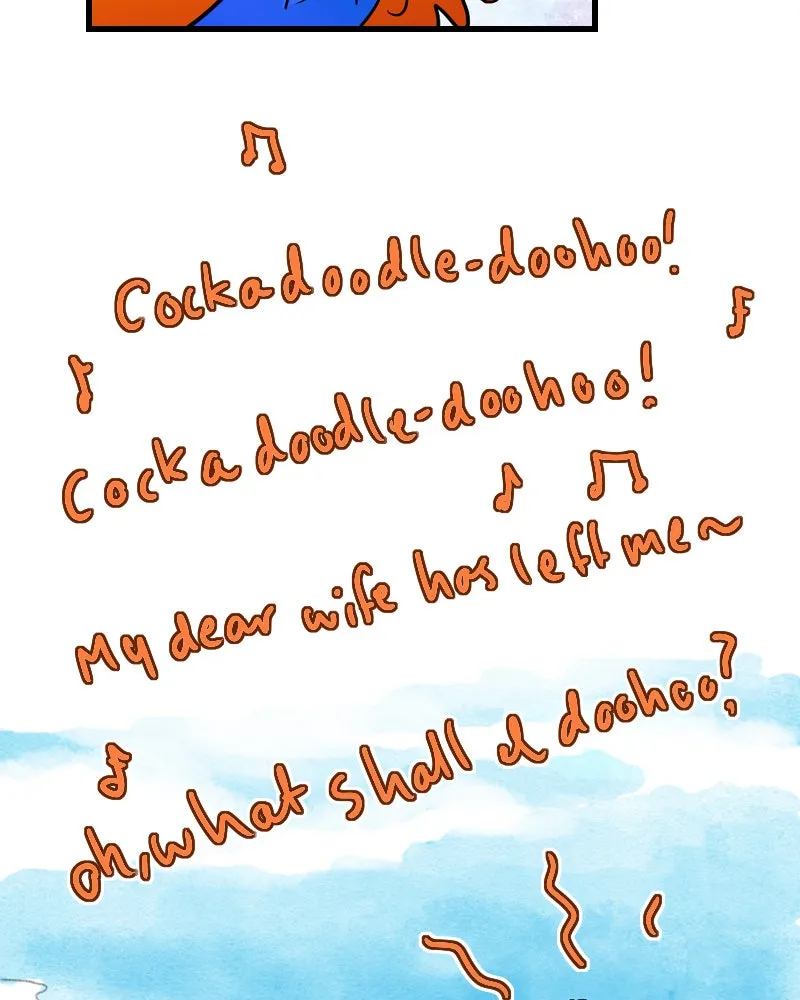 Cockadoodle-doohoo!
Cockadoodle-doohoo!
My dear wife has left me~
oh, what shall I doohoo?